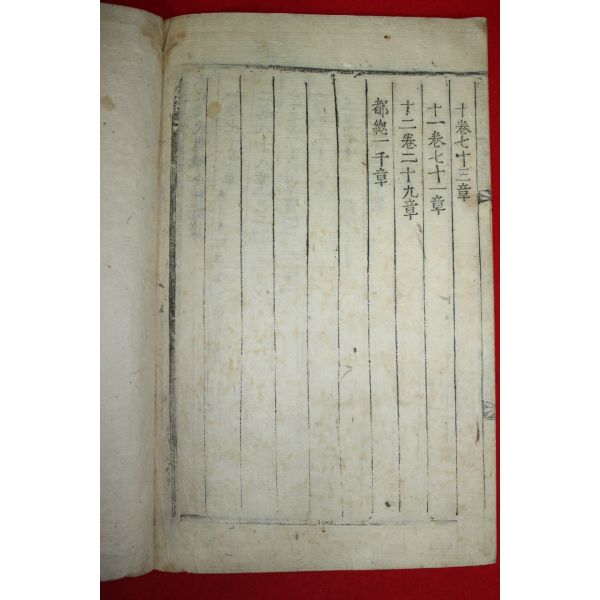 十卷七十三章
十一卷七十一章
十二卷二十九章
都總一千章